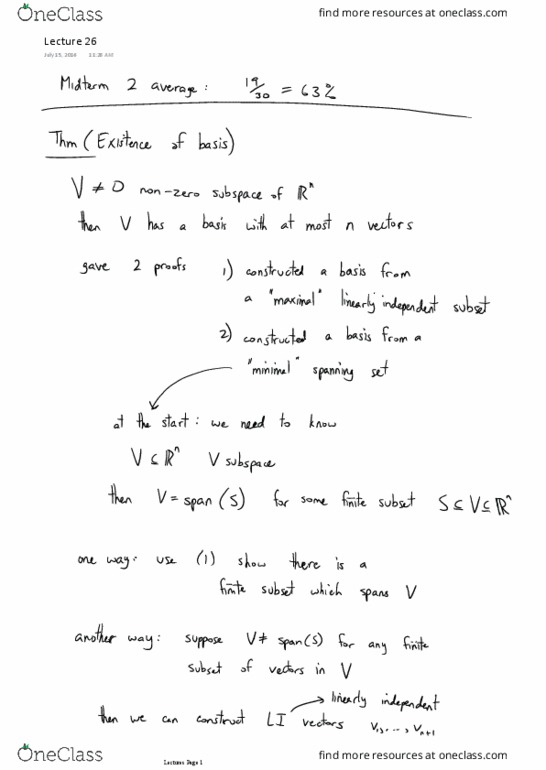 OneClass
find more resources at oneclass.com
Lecture 26
Midterm 2 average: 19/30 = 63%
Thm (Existence of basis)
V ≠ 0 non-zero subspace of ℝⁿ
then V has a basis with at most n vectors
gave 2 proofs 1) constructed a basis from
a "maximal" linearly independent subset
2) constructed a basis from a
"minimal" spanning set
at the start: we need to know
V ⊆ ℝⁿ V subspace
then V = span(S) for some finite subset S ⊆ V ⊆ ℝⁿ
one way: use (1) show there is a
finite subset which spans V
another way: suppose V ≠ span(S) for any finite
subset of vectors in V
linearly independent
then we can construct LI vectors v₁, ..., vₙ₊₁
Lectures Page 1
OneClass
find more resources at oneclass.com